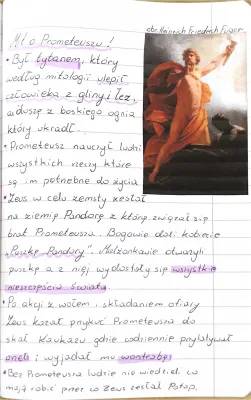 obr. Heinrich Friedrich Füger
Mit o Prometeuszu!
• Był tytanem, który
według mitologii ulepił
człowieka z gliny i łez,
a duszę z boskiego ognia
który ukradł.
• Prometeusz nauczył ludzi
wszystkich rzeczy które
są im potrzebne do życia
• Zeus w celu zemsty zesłał
na ziemię Pandorę z którą związał się
brat Prometeusza. Bogowie dali kobiecie
„Puszkę Pandory”. Małżonkowie otwarli
puszkę a z niej wydostały się wszystkie
nieszczęścia świata.
• Po akcji z wołem, składaniem ofiary
Zeus kazał przykuć Prometeusza do
skał Kaukazu gdzie codziennie przylatywał
orzeł i wyjadał mu wątrobę.
• Bez Prometeusza ludzie nie wiedzieli co
mają robić przez co Zeus zesłał Potop.